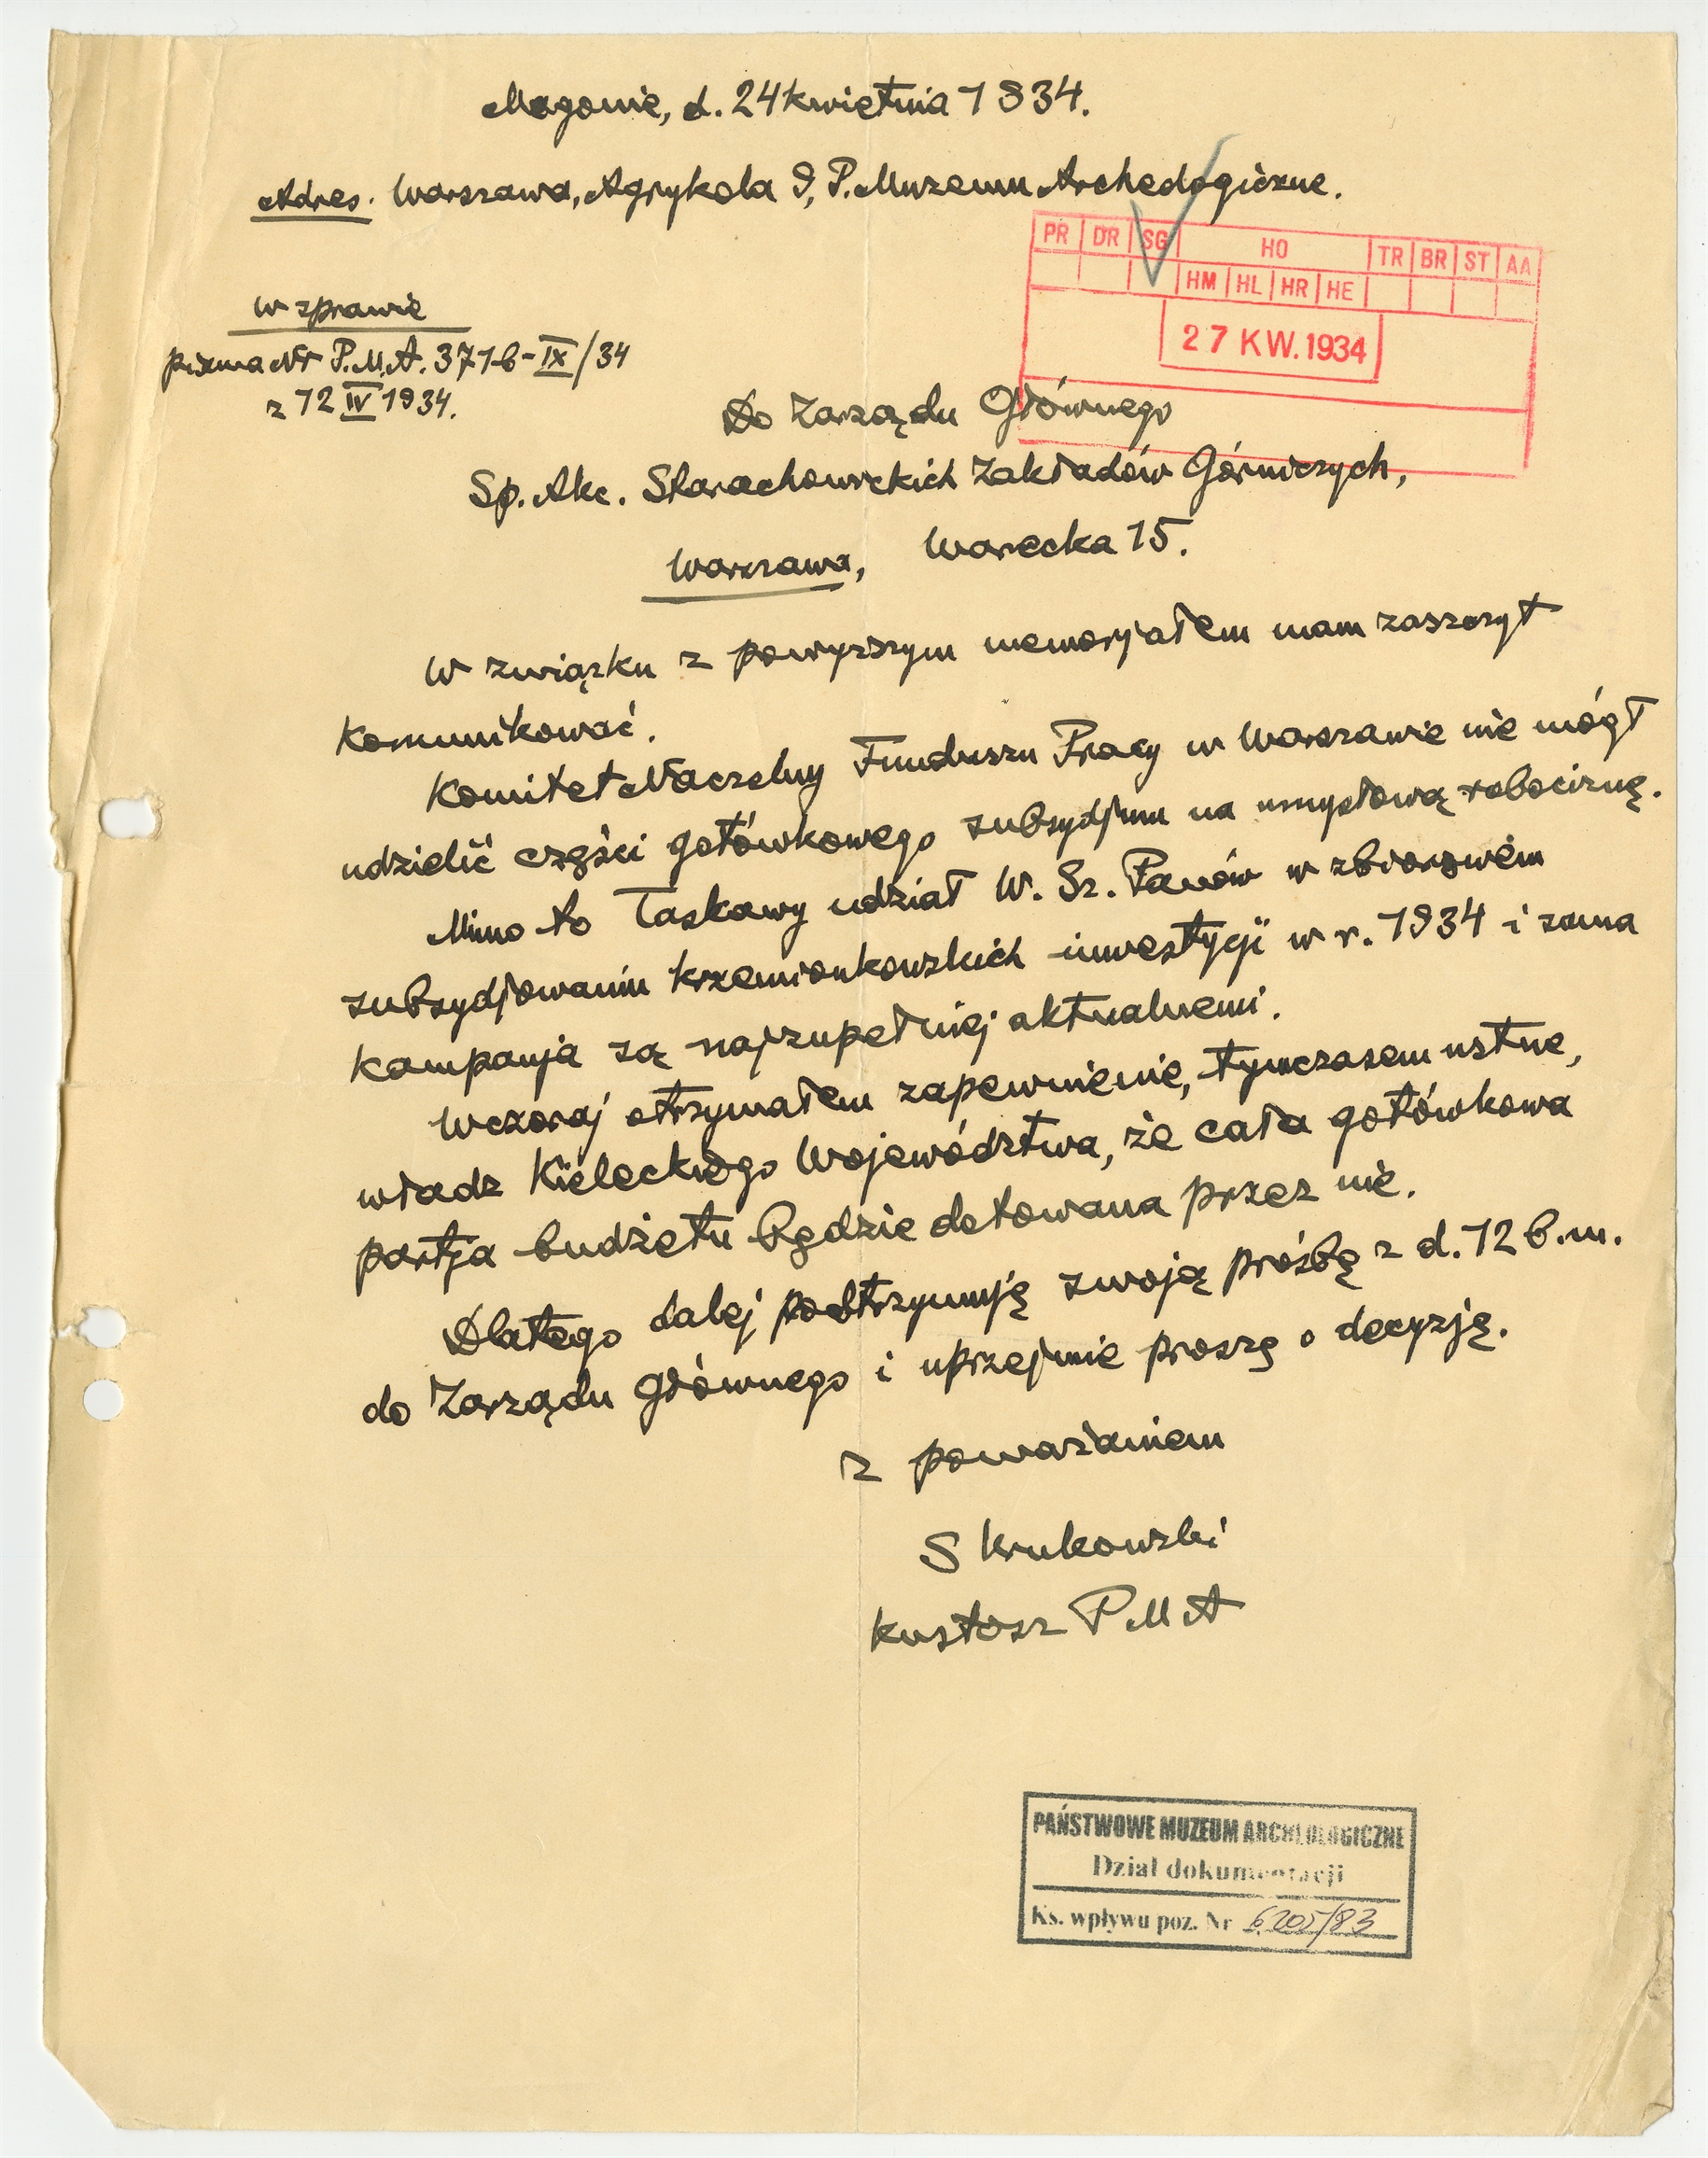 Magonie, d. 24 kwietnia 1934.
Adres. Warszawa, Agrykola 9, P. Muzeum Archeologiczne.
PR DR SG HO TR BR ST AA
HM HL HR HE
27 KW. 1934
W sprawie
pisma Nr P.M.A. 371b-IX/34
z 12 IV 1934.
Do Zarządu Głównego
Sp. Akc. Starachowickich Zakładów Górniczych,
Warszawa, Warecka 15.
W związku z powyższym memorjałem mam zaszczyt
komunikować.
Komitet Naczelny Funduszu Pracy w Warszawie nie mógł
udzielić części gotówkowego subsydjum na umysłową robociznę.
Mimo to łaskawy udział W. Sz. Panów w zbiorowém
subsydjowaniu krzemionkowskich inwestycji w r. 1934 i sama
kampanja są najzupełniej aktualnemi.
Wczoraj otrzymałem zapewnienie, tymczasem ustne,
władz Kieleckiego Województwa, że cała gotówkowa
partja budżetu będzie dotowana przez nie.
Dlatego dalej podtrzymuję swoją prośbę z d. 12 b.m.
do Zarządu Głównego i uprzejmie proszę o decyzję.
Z poważaniem
S Krukowski
Kustosz P M A
PAŃSTWOWE MUZEUM ARCHEOLOGICZNE
Dział dokumentacji
Ks. wpływu poz. Nr 6205/83